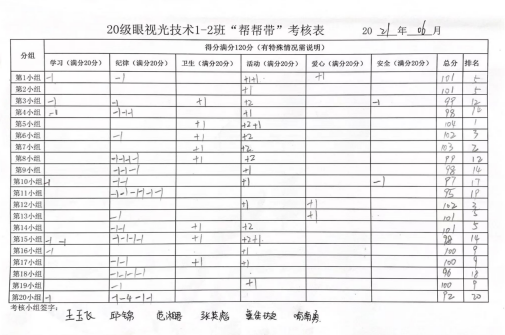 20级眼视光技术1-2班“帮帮带”考核表 20 21 年 06 月
分组 得分满分120分（有特殊情况需说明）
学习（满分20分） 纪律（满分20分） 卫生（满分20分） 活动（满分20分） 爱心（满分20分） 安全（满分20分） 总分 排名
第1小组 -1 -1 +1+1 +1 101 5
第2小组 +1 101 5
第3小组 -1 -1 +1 +2 -1 99 12
第4小组 -1 -1-1 +1 98
第5小组 +1 +2+1 104 1
第6小组 -1 +1 +2 102 3
第7小组 +1 +2 103 2
第8小组 -1-1-1 +1 +2 99 12
第9小组 -1-1-1 +1 98 14
第10小组 -1 -1-1 +1 -1 97 17
第11小组 95 19
第12小组 +1 +1 102 3
第13小组 -1 +1 101 5
第14小组 -1-1 +1 +2 101 5
第15小组 -1 -1 -1-1-1-1 +1 +2+1 98 14
第16小组 -1 +1 100 9
第17小组 -1-1 +1 +1 100 9
第18小组 -1-1-1-1 96 18
第19小组 -1 +1 100 9
第20小组 -1 -1-4-1-1 92 20
考核小组签字：